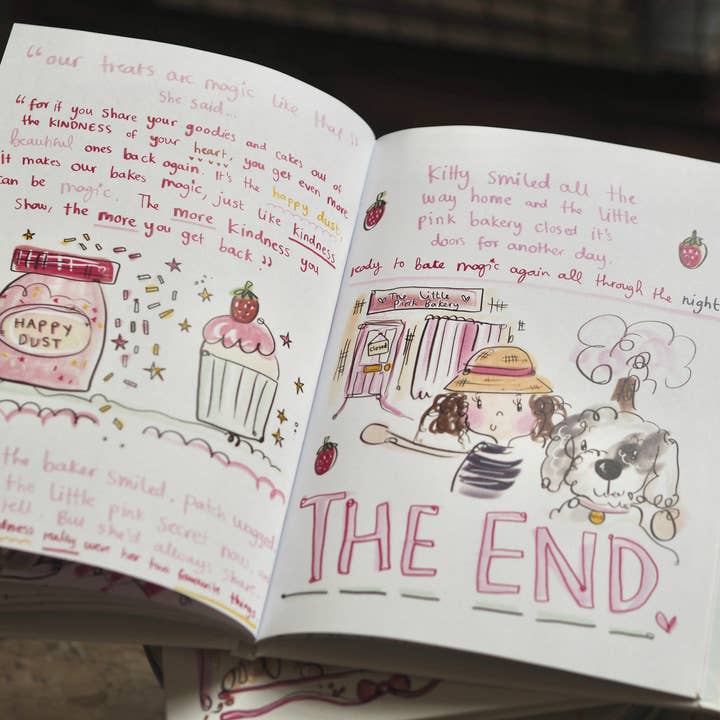 “our treats are magic like that ”
she said...
“for if you share your goodies and cakes out of
the KINDNESS of your heart, you get even more
beautiful ones back again. It's the happy dust,
it makes our bakes magic, just like kindness
can be magic. The more kindness you
show, the more you get back.”
HAPPY
DUST
the baker smiled, patch wagged,
the little pink secret now,
tell. But she'd always share...
really were her two favourite things
Kitty smiled all the
way home and the little
pink bakery closed it's
doors for another day.
ready to bake magic again all through the night
The Little
Pink Bakery
closed
THE END.